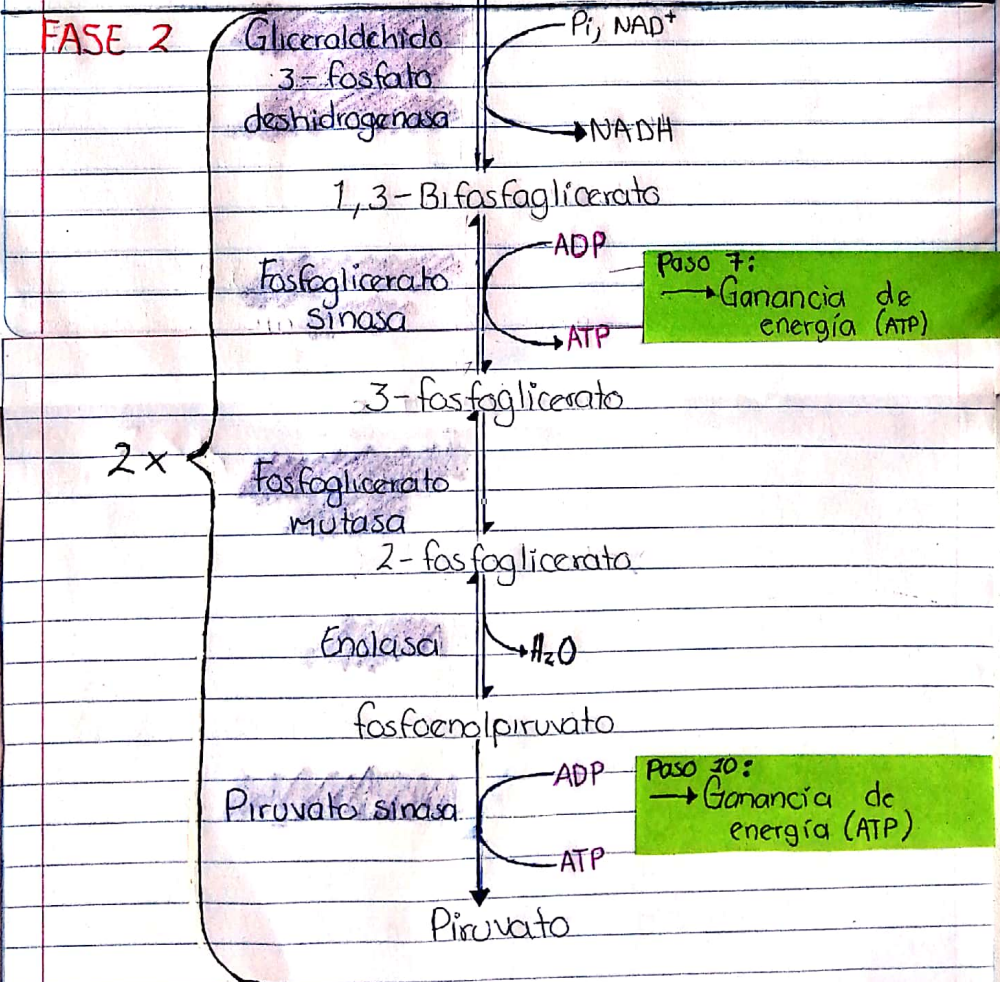 FASE 2
Gliceraldehido
3-fosfato
deshidrogenasa
Pi, NAD+
NADH
1,3-Bifosfoglicerato
Fosfoglicerato
sinasa
ADP
ATP
Paso 7:
→Ganancia de
energía (ATP)
3-fosfoglicerato
2x
Fosfoglicerato
mutasa
2-fosfoglicerato
Enolasa
H₂O
fosfoenolpiruvato
Piruvato sinasa
ADP
ATP
Paso 10:
→Ganancia de
energía (ATP)
Piruvato